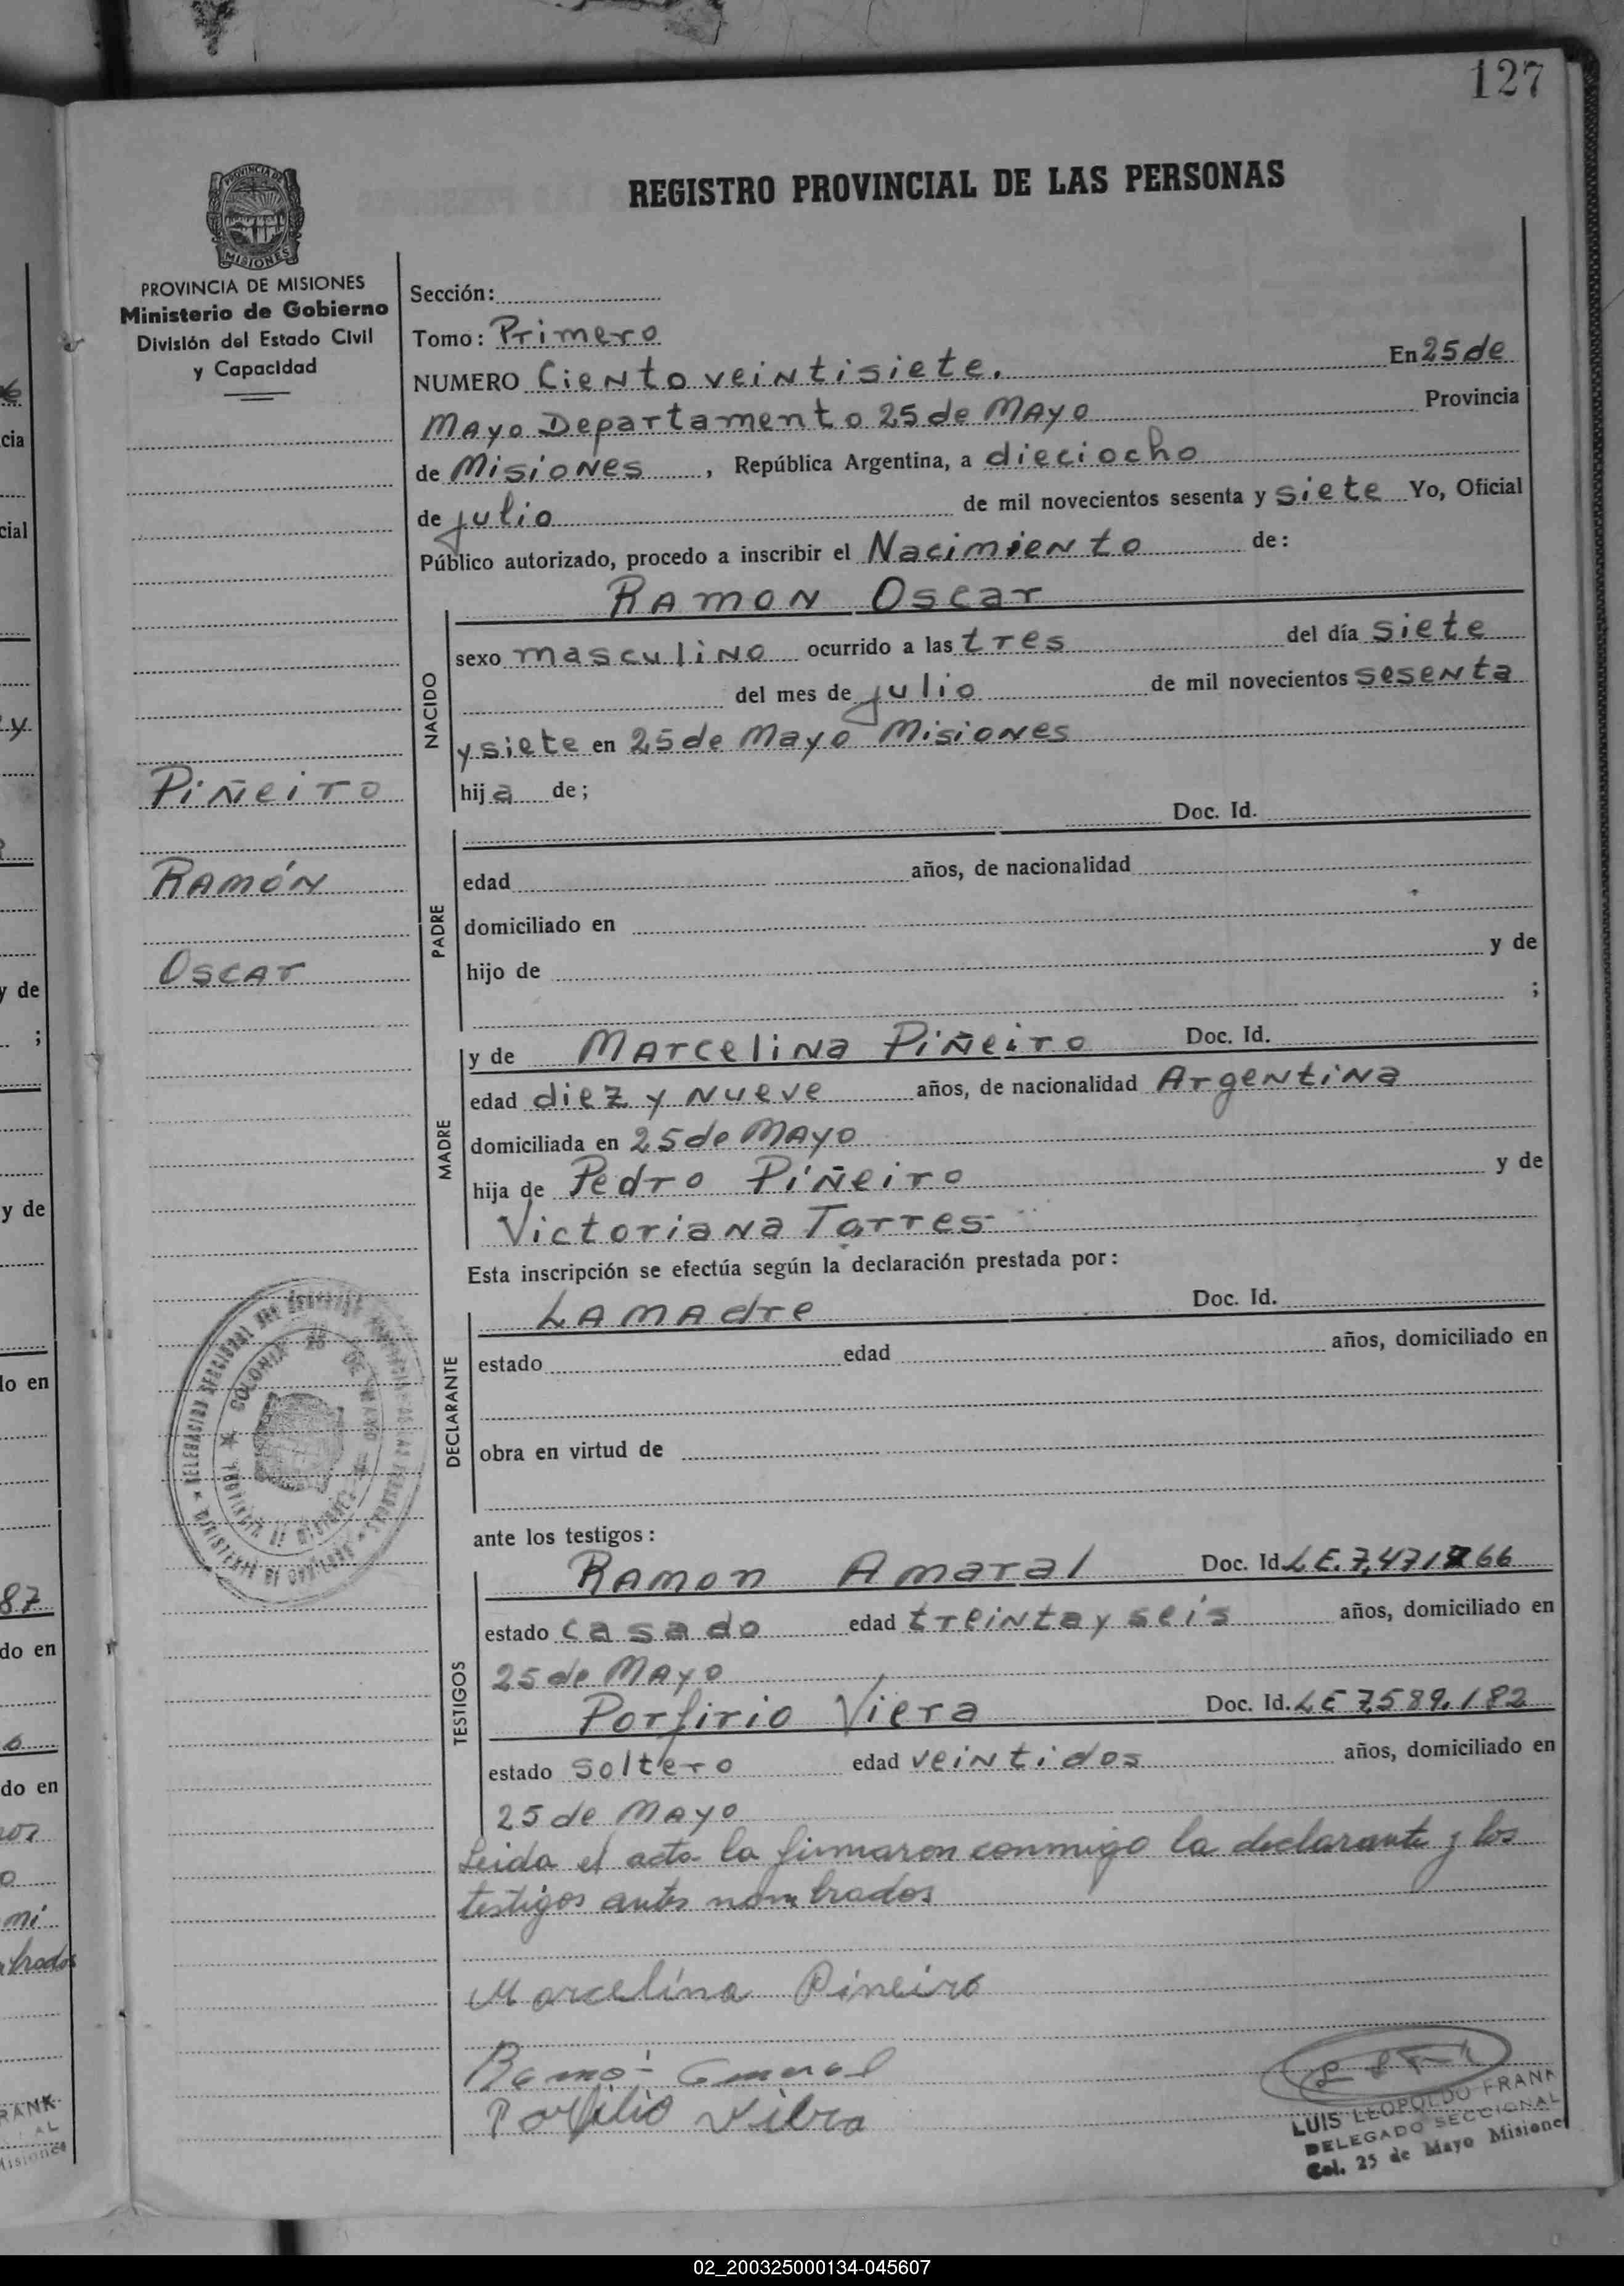 127
REGISTRO PROVINCIAL DE LAS PERSONAS
PROVINCIA DE MISIONES
PROVINCIA DE MISIONES
Ministerio de Gobierno
División del Estado Civil
y Capacidad
Piñeiro
Ramón
Oscar
Sección:
Tomo: Primero
NUMERO Ciento veintisiete. En 25 de
Mayo Departamento 25 de Mayo Provincia
de Misiones, República Argentina, a dieciocho
de julio de mil novecientos sesenta y siete Yo, Oficial
Público autorizado, procedo a inscribir el Nacimiento de:
Ramon Oscar
NACIDO
sexo masculino ocurrido a las tres del día siete
del mes de julio de mil novecientos sesenta
y siete en 25 de Mayo Misiones
hija de;
PADRE
Doc. Id.
edad años, de nacionalidad
domiciliado en
hijo de y de
;
MADRE
y de Marcelina Piñeiro Doc. Id.
edad diez y nueve años, de nacionalidad Argentina
domiciliada en 25 de Mayo
hija de Pedro Piñeiro y de
Victoriana Torres
Esta inscripción se efectúa según la declaración prestada por:
DECLARANTE
La Madre Doc. Id.
estado edad años, domiciliado en
obra en virtud de
ante los testigos:
TESTIGOS
Ramon Amaral Doc. Id. LE. 7,471866
estado casado edad treinta y seis años, domiciliado en
25 de Mayo
Porfirio Viera Doc. Id. LE 7,589.182
estado soltero edad veintidos años, domiciliado en
25 de Mayo
Leida el acta la firmaron conmigo la declarante y los
testigos antes nombrados
Marcelina Pineiro
LUIS LEOPOLDO FRANK
DELEGADO SECCIONAL
Col. 25 de Mayo Misiones
COLONIA 25 DE MAYO
PROVINCIA DE MISIONES
02_200325000134-045607